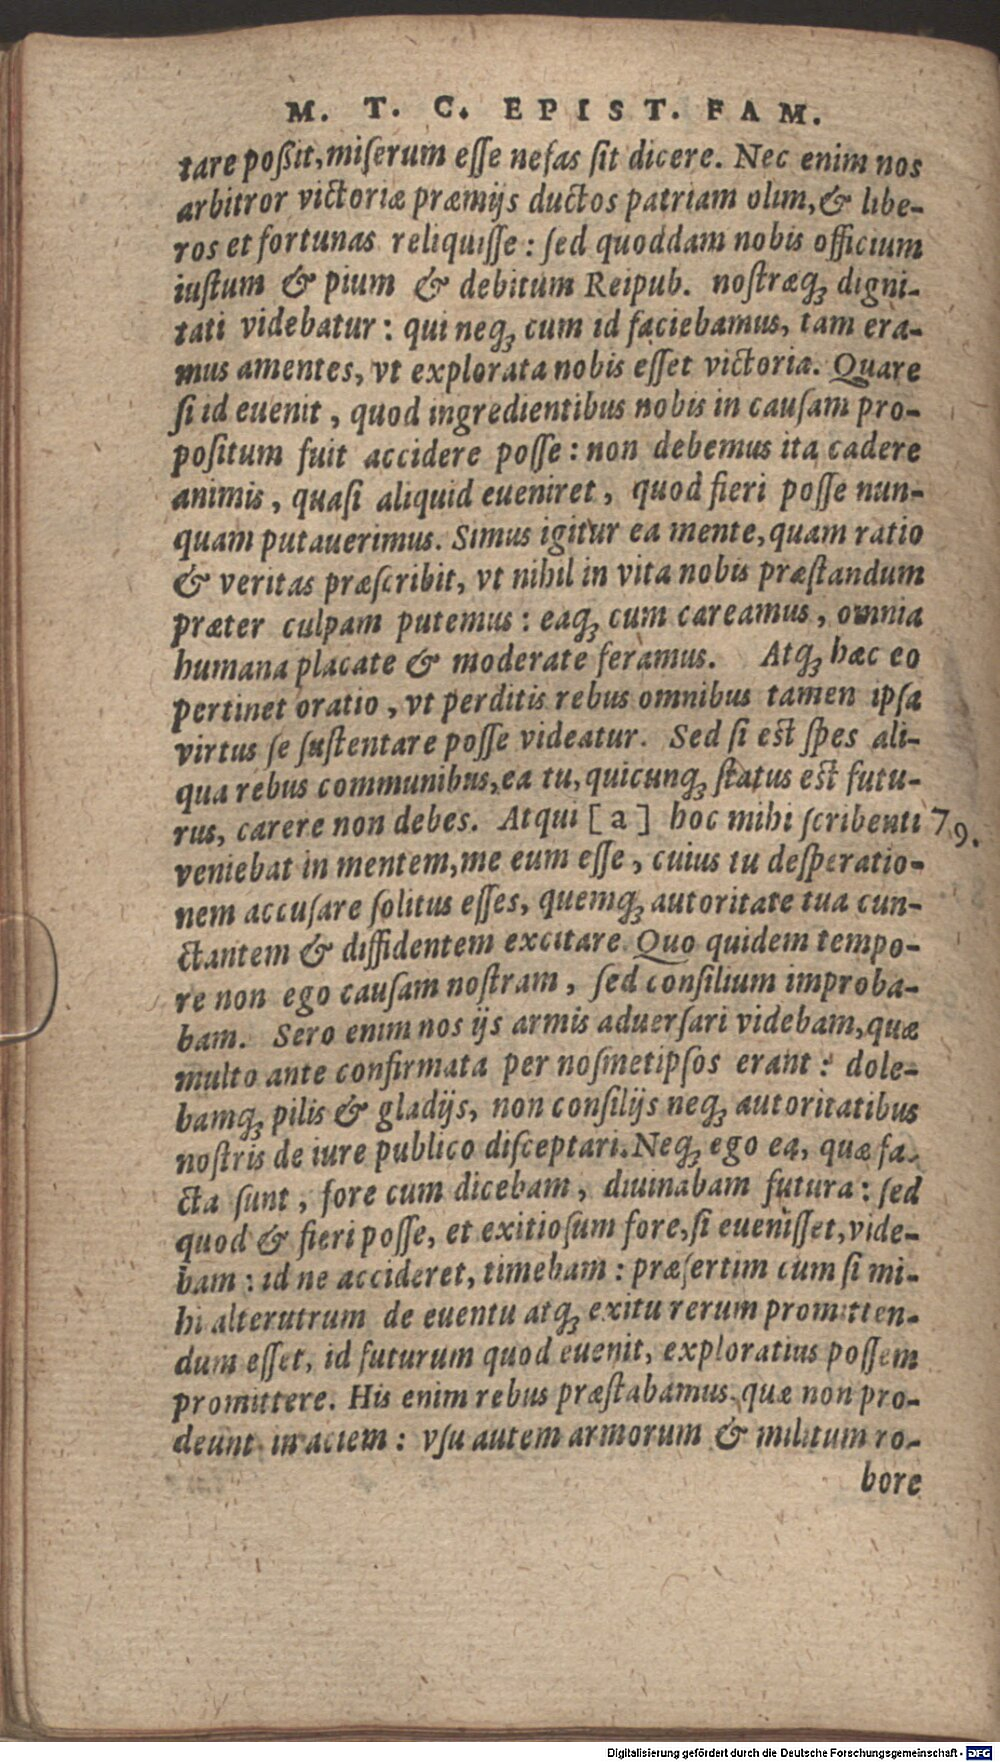 M. T. C. EPIST. FAM.
tare poßit, miſerum eſſe nefas ſit dicere. Nec enim nos
arbitror victoriæ præmijs ductos patriam olim, & libe-
ros et fortunas reliquiſſe: ſed quoddam nobis officium
iuſtum & pium & debitum Reipub. noſtræq́ꝫ digni-
tati videbatur: qui neqꝫ cum id faciebamus, tam era-
mus amentes, vt explorata nobis eſſet victoria. Quare
ſi id euenit, quod ingredientibus nobis in cauſam pro-
poſitum fuit accidere poſſe: non debemus ita cadere
animis, quaſi aliquid eueniret, quod fieri poſſe nun-
quam putauerimus. Simus igitur ea mente, quam ratio
& veritas præſcribit, vt nihil in vita nobis præſtandum
præter culpam putemus: eaqꝫ cum careamus, omnia
humana placate & moderate feramus. Atqꝫ hæc eo
pertinet oratio, vt perditis rebus omnibus tamen ipſa
virtus ſe ſuſtentare poſſe videatur. Sed ſi eſt ſpes ali-
qua rebus communibus, ea tu, quicunqꝫ ſtatus eſt futu-
rus, carere non debes. Atqui [a] hoc mihi ſcribenti 79.
veniebat in mentem, me eum eſſe, cuius tu deſperatio-
nem accuſare ſolitus eſſes, quemqꝫ autoritate tua cun-
ctantem & diffidentem excitare. Quo quidem tempo-
re non ego cauſam noſtram, ſed conſilium improba-
bam. Sero enim nos ijs armis aduerſari videbam, quæ
multo ante confirmata per noſmetipſos erant: dole-
bamqꝫ pilis & gladijs, non conſilijs neqꝫ autoritatibus
noſtris de iure publico diſceptari. Neqꝫ ego ea, quæ fa-
cta ſunt, fore cum dicebam, diuinabam futura: ſed
quod & fieri poſſe, et exitioſum fore, ſi eueniſſet, vide-
bam: id ne accideret, timebam: præſertim cum ſi mi-
hi alterutrum de euentu atqꝫ exitu rerum promitten-
dum eſſet, id futurum quod euenit, exploratius poſſem
promittere. His enim rebus præſtabamus, quæ non pro-
deunt in aciem: vſu autem armorum & militum ro-
bore
Digitalisierung gefördert durch die Deutsche Forschungsgemeinschaft - DFG